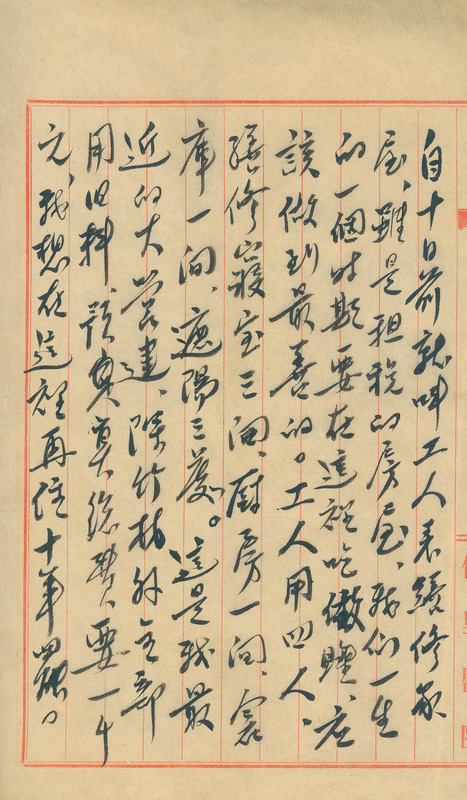 自十日前就叫工人来繕修家
屋、雖是租稅的房屋、我们一生
的一個时期要在這裡吃做睡、应
該做到最善的。工人用四人、
繕修寝室三间、厨房一间、倉
庫一间、遮陽三處。這是我最
近的大营建、除竹材外全部
用旧料、預算莫總費要一千
元、我想在這裡再住十年罷。